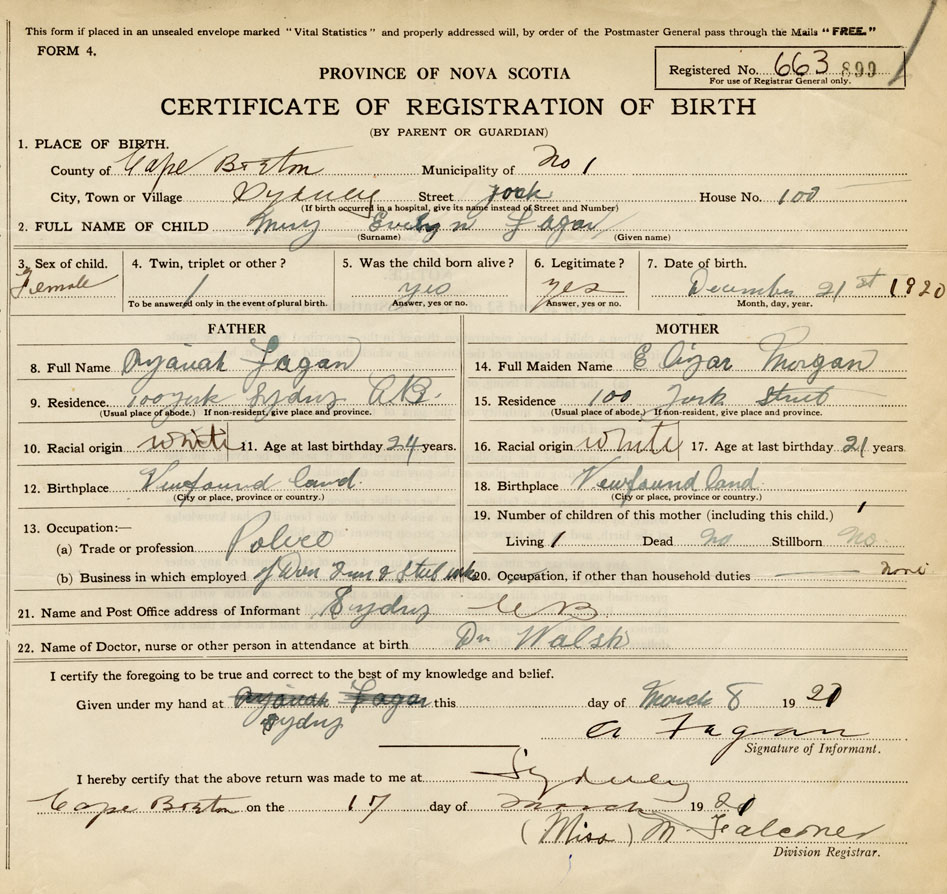 This form if placed in an unsealed envelope marked "Vital Statistics" and properly addressed will, by order of the Postmaster General pass through the Mails "FREE."
FORM 4.
Registered No. 663 899
For use of Registrar General only.
PROVINCE OF NOVA SCOTIA
CERTIFICATE OF REGISTRATION OF BIRTH
(BY PARENT OR GUARDIAN)
1. PLACE OF BIRTH.
County of Cape Breton Municipality of No 1
City, Town or Village Sydney Street York House No. 100
(If birth occurred in a hospital, give its name instead of Street and Number)
2. FULL NAME OF CHILD Mary Evelyn Fagan
(Surname) (Given name)
3. Sex of child. 4. Twin, triplet or other? 5. Was the child born alive? 6. Legitimate? 7. Date of birth.
Female 1 yes yes December 21st 1920
To be answered only in the event of plural birth. Answer, yes or no. Answer, yes or no. Month, day, year.
FATHER
8. Full Name Fagan
9. Residence. 100 York Sydney C.B.
(Usual place of abode.) If non-resident, give place and province.
10. Racial origin white 11. Age at last birthday 24 years.
12. Birthplace Newfound land
(City or place, province or country.)
13. Occupation:—
(a) Trade or profession Police
(b) Business in which employed of Dom & Steel
MOTHER
14. Full Maiden Name Elizar Morgan
15. Residence 100 York Street
(Usual place of abode.) If non-resident, give place and province.
16. Racial origin White 17. Age at last birthday 21 years
18. Birthplace Newfound land
(City or place, province or country.)
19. Number of children of this mother (including this child.) 1
Living 1 Dead no Stillborn no
20. Occupation, if other than household duties none
21. Name and Post Office address of Informant Sydney C B
22. Name of Doctor, nurse or other person in attendance at birth Dr Walsh
I certify the foregoing to be true and correct to the best of my knowledge and belief.
Given under my hand at Fagan this day of March 8 1921
Sydney
A Fagan
Signature of Informant.
I hereby certify that the above return was made to me at Sydney
Cape Breton on the 17 day of March 1921
(Miss) M. Falconer
Division Registrar.